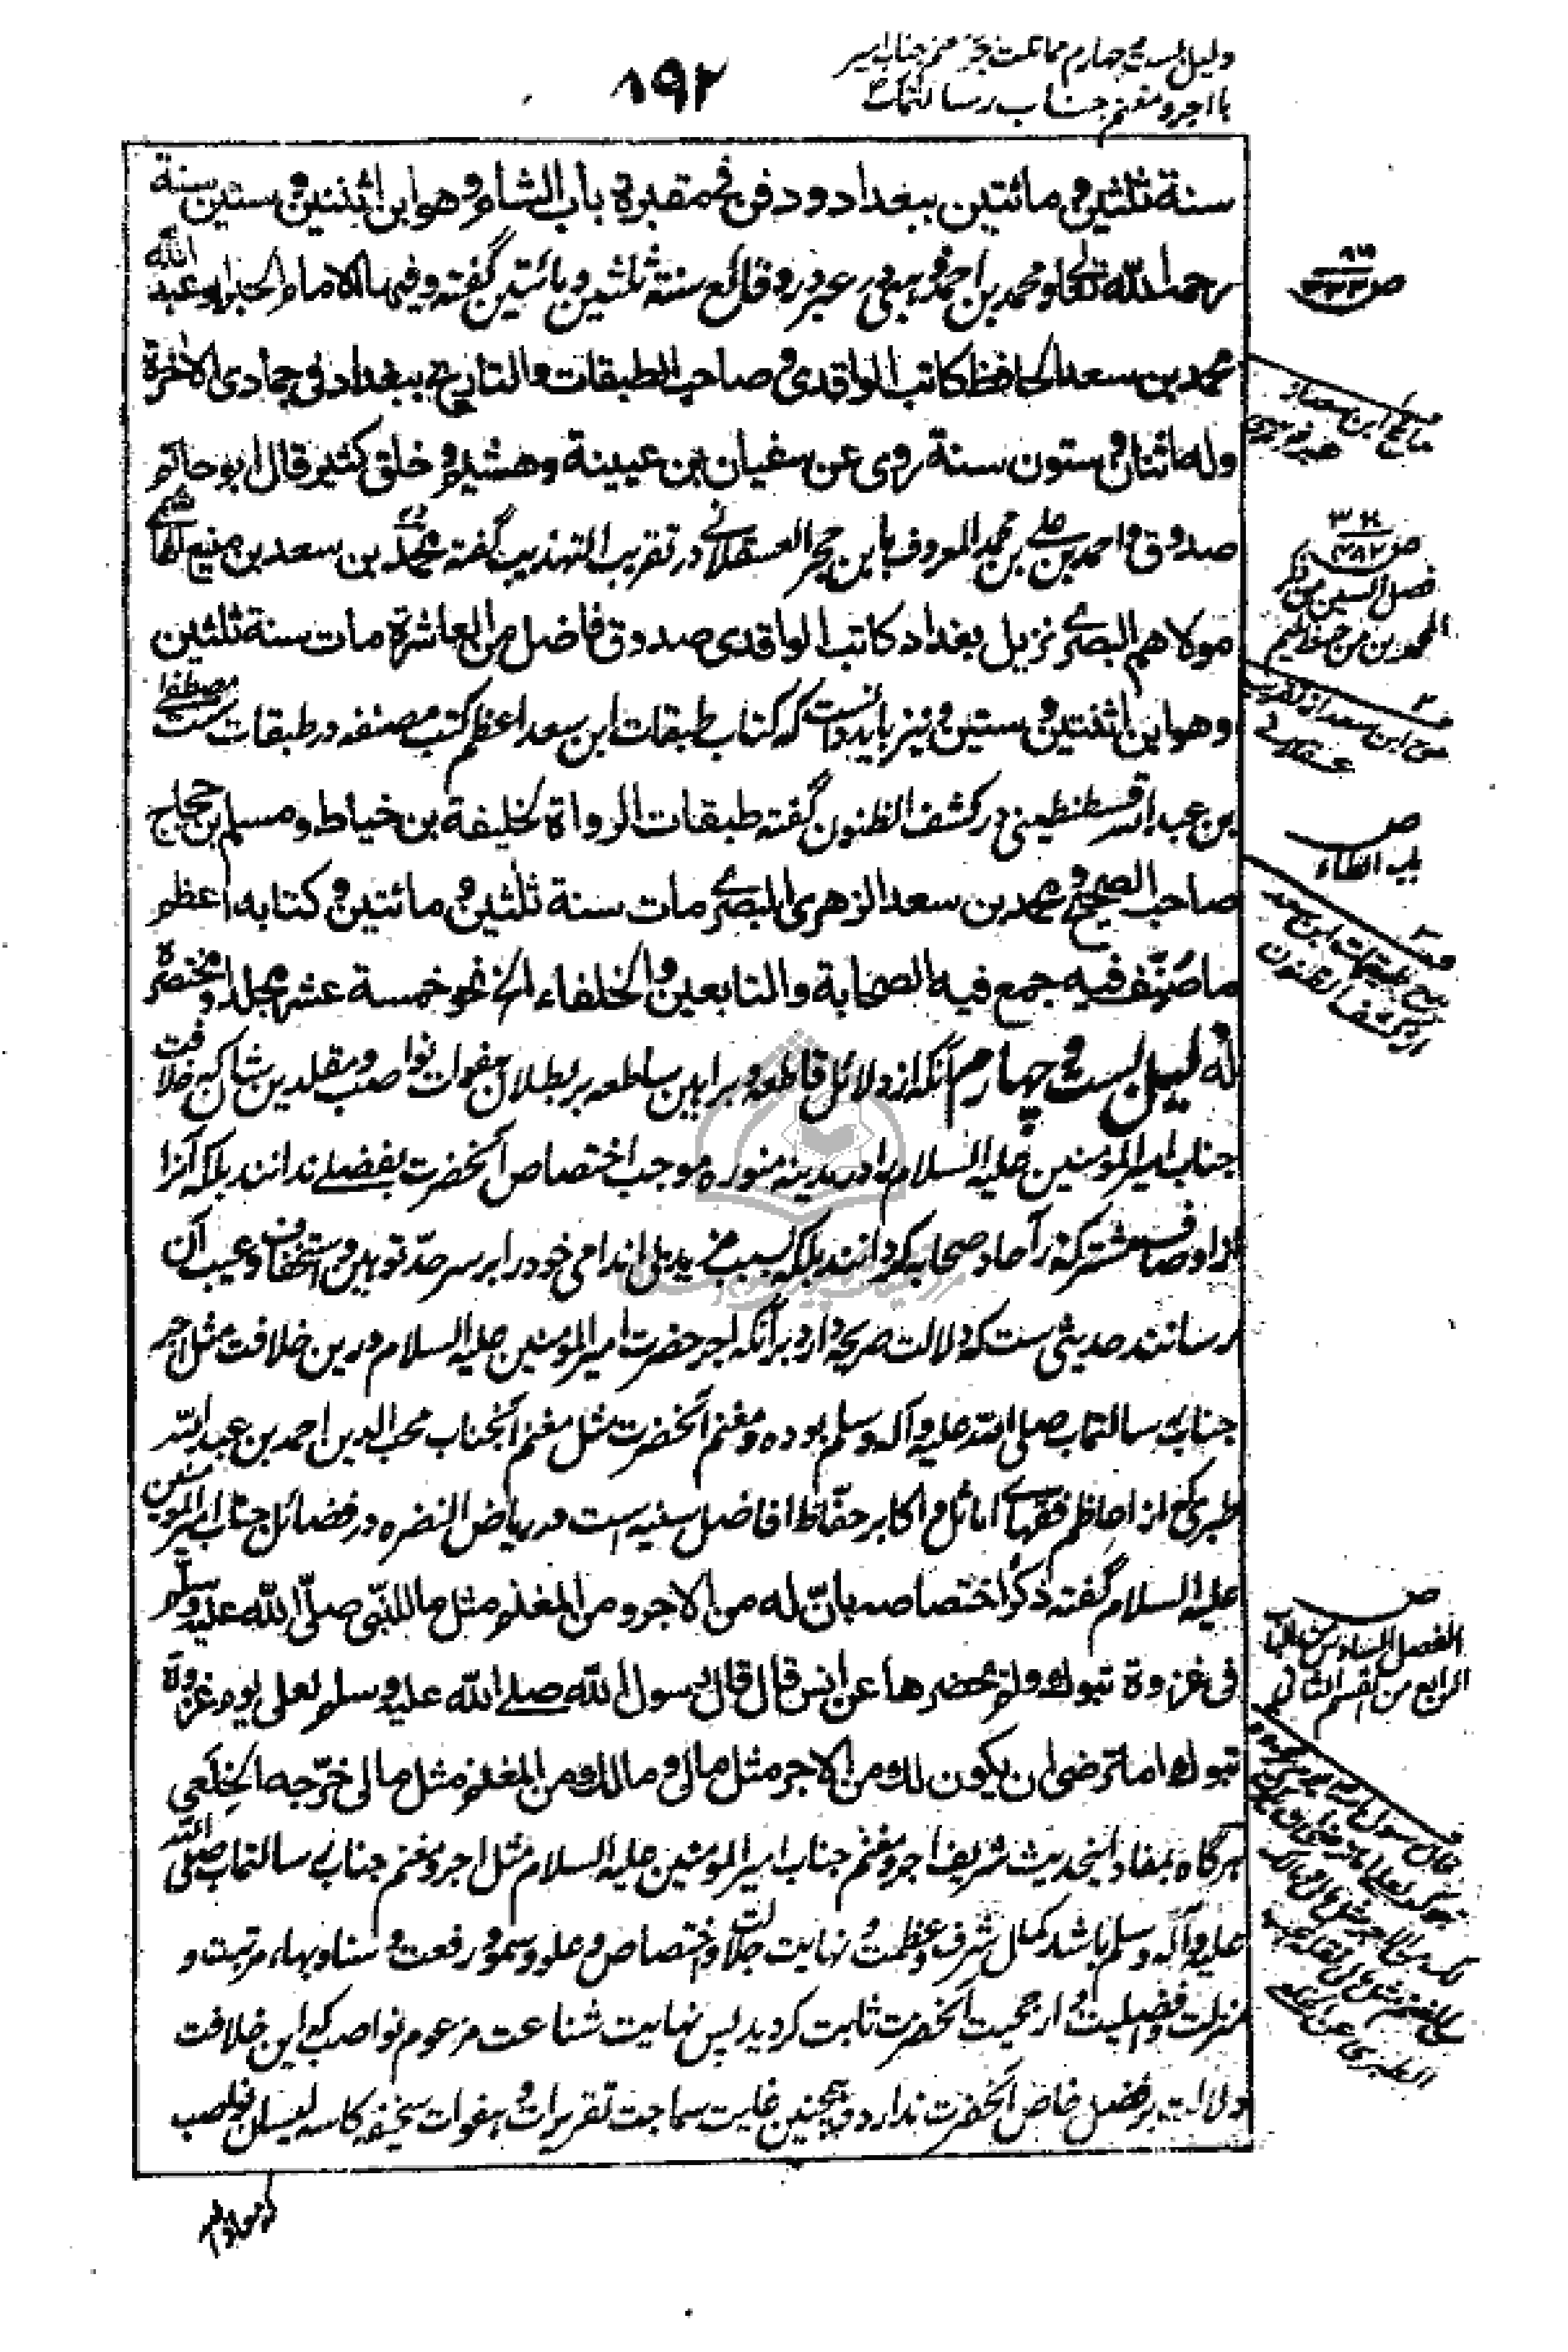 دلیل بست و چهارم مماثلت اجر و مغنم جناب امیر
با اجر و مغنم جناب رسالتمآب
۸۹۲
سنة ثلثین و مائتین ببغداد و دفن فی مقبرة باب الشام و هو ابن اثنتین و ستین سنة
رحمه الله تعالی و محمد بن احمد ذهبی در عبر در وقائع سنة ثلثین و مائتین گفته و فیها الامام الحبر ابو عبد الله
محمد بن سعد الحافظ کاتب الواقدی و صاحب الطبقات و التاریخ ببغداد فی جمادی الاخرة
و له اثنان و ستون سنة روی عن سفیان بن عیینة و هشیم و خلق کثیر قال ابو حاتم
صدوق و احمد بن علی بن محمد المعروف بابن حجر العسقلانی در تقریب التهذیب گفته محمد بن سعد بن منیع الهاشمی
مولاهم البصری نزیل بغداد کاتب الواقدی صدوق فاضل من العاشرة مات سنة ثلثین
و هو ابن اثنتین و ستین و نیز باید دانست که کتاب طبقات ابن سعد اعظم کتب مصنفه در طبقات ست مصطفی
بن عبد الله قسطنطینی در کشف الظنون گفته طبقات الرواة لخلیفة بن خیاط و مسلم بن حجاج
صاحب الصحیح و محمد بن سعد الزهری البصری مات سنة ثلثین و مائتین و کتابه اعظم
ما صُنّف فیه جمع فیه الصحابة و التابعین و الخلفاء الخ نحو خمسة عشر مجلدا و مختصره
دلیل بست و چهارم آنکه از دلائل قاطعه و براهین ساطعه بر بطلان هفوات نواصب و مقلدین شان که خلافت
جناب امیر المؤمنین علیه السلام را در مدینه منوره موجب اختصاص آنحضرت بفضلی ندانند بلکه آنرا
از اوصاف مشترکه در آحاد صحابه گردانند بلکه بسبب مزید بی اندامی خود را بر سر حدّ توهین و استخفاف و عیب آن
رسانند حدیثی ست که دلالت صریحه دارد بر آنکه اجر حضرت امیر المؤمنین علیه السلام درین خلافت مثل اجر
جناب رسالتمآب صلی الله علیه و آله و سلم بوده و مغنم آنحضرت مثل مغنم آنجناب محب الدین احمد بن عبد الله
طبری که از اعاظم فقهای اماثل و اکابر حفّاظ افاضل سنیه است در ریاض النضره در فضائل جناب امیر المؤمنین
علیه السلام گفته ذکر اختصاصه بانّ له من الاجر و من المغنم مثل ما للنّبی صلّی الله علیه و سلّم
فی غزوة تبوك و لم یحضرها عن انس قال قال رسول الله صلے الله علیه و سلم لعلی یوم غزوة
تبوك اما ترضی ان یکون لك من الاجر مثل مالی و مالك من المغنم مثل مالی خرّجه الخِلَعی
هرگاه بمفاد اینحدیث شریف اجر و مغنم جناب امیر المؤمنین علیه السلام مثل اجر و مغنم جناب رسالتمآب صلی الله
علیه و آله و سلم باشد کمال شرف و عظمت و نهایت جلالت و اختصاص و علو و سمو و رفعت و سنا و بهاء مرتبت و
منزلت و افضلیت و ارجحیت آنحضرت ثابت گردید پس نهایت شناعت مزعوم نواصب که این خلافت
دلالت بر فضل خاص آنحضرت ندارد و همچنین غایت سماجت تقریرات و هفوات سخیفه کاسه لیسان نواصب
ص ۳۳۳
مدح ابن سعد از
عبر ذهبی
ص ۳۸۲
فصل السین من ذکر
المحمدین من حرف المیم
مدح ابن سعد از تقریب
عسقلانی
ص
باب الطاء
مدح طبقات ابن سعد
از کشف الظنون
ص
الفصل السادس من الباب
الرابع من القسم الثانی